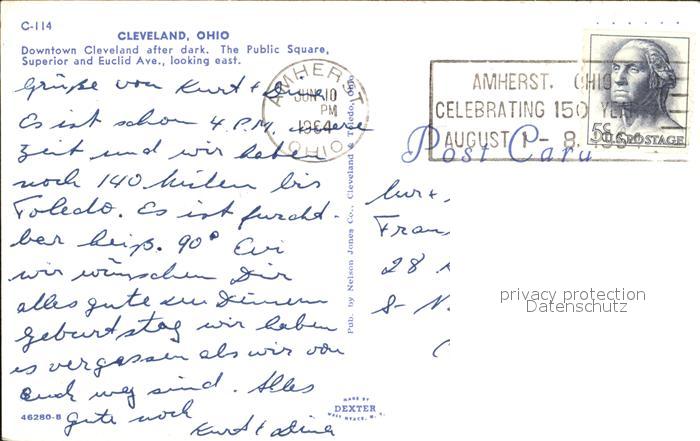 C-114
CLEVELAND, OHIO
Downtown Cleveland after dark. The Public Square,
Superior and Euclid Ave., looking east.
Grüße von Kurt +
Es ist schon 4 P.M. unsere
Zeit und wir haben
noch 140 Meilen bis
Toledo. Es ist furcht-
bar heiß. 90° Evi
wir wünschen Dir
alles gute zu Deinem
Geburtstag wir haben
es vergessen als wir von
Euch weg sind. Alles
gute noch
Kurt + Dina
46280-B
MADE BY
DEXTER
WEST NYACK, N. Y.
Pub. by Nelson Jones Co., Cleveland & Toledo, Ohio
AMHERST
JUN 10
PM
1964
OHIO
AMHERST, OHIO
CELEBRATING 150 YEARS
AUGUST 1 - 8, 1964
5¢ U.S. POSTAGE
Post Card
Kurt
Fran
28
8- N.
privacy protection
Datenschutz